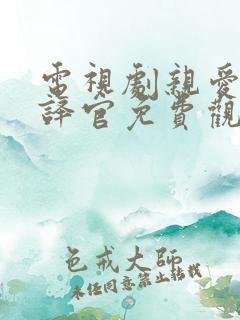 電視劇親愛
譯官免費觀
色戒大師
未经同意禁止转载